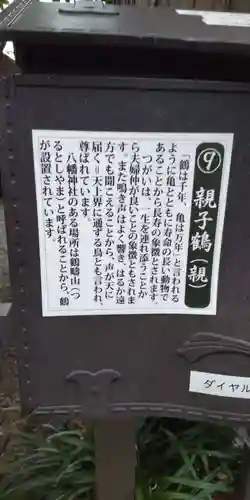 ⑨ 親子鶴（親）
「鶴は千年、亀は万年」と言われる
ように亀とともに寿命の長い動物で
あることから長寿の象徴とされます。
つがいは、一生を連れ添うことか
ら夫婦仲が良いことの象徴ともされま
す。また鳴き声はよく響き、はるか遠
方でも聞こえることから、声が天に
届く＝天上界に通ずる鳥とも言われ、
尊ばれています。
八幡神社のある場所は鶴疇山（つ
るとしやま）と呼ばれることから、鶴
が設置されています。
ダイヤル